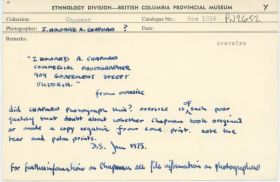 ETHNOLOGY DIVISION—BRITISH COLUMBIA PROVINCIAL MUSEUM Y
Collection: Chapman Catalogue No: Box 1016 PN2652
Photographer: J. HOWARD A. CHAPMAN ?
Remarks: oversize
"J. HOWARD A CHAPMAN
COMMERCIAL PHOTOGRAPHER
909 GOVERNMENT STREET
VICTORIA."
from oversize
did CHAPMAN photograph this? oversize is of such poor
quality that doubt about whether Chapman took original
or made a copy negative from some print. note the
tear and palm prints.
D.S. Jan 1975.
For further information on Chapman see file information on photographers